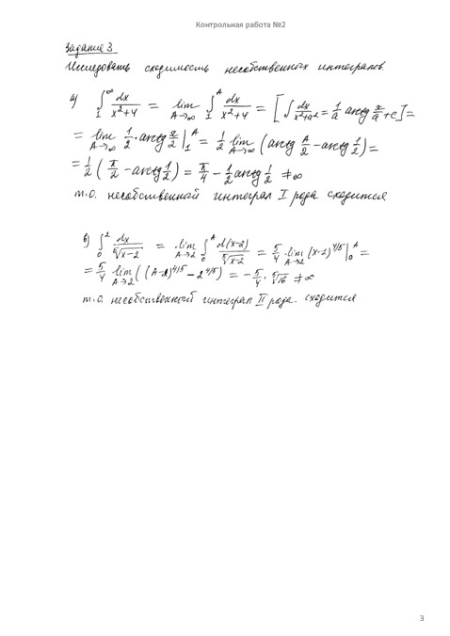 Контрольная работа №2
Задание 3
Исследовать сходимость несобственных интегралов.
а) ∫₁^∞ dx/(x²+4) = lim_{A→∞} ∫₁^A dx/(x²+4) = [∫ dx/(x²+a²) = 1/a arctg x/a + c] =
= lim_{A→∞} 1/2 · arctg x/2 |₁^A = 1/2 lim_{A→∞} (arctg A/2 − arctg 1/2) =
= 1/2 (π/2 − arctg 1/2) = π/4 − 1/2 arctg 1/2 ≠ ∞
т.о. несобственный интеграл I рода сходится
в) ∫₀² dx/⁵√(x−2) = lim_{A→2} ∫₀^A d(x−2)/⁵√(x−2) = 5/4 · lim_{A→2} (x−2)^{4/5} |₀^A =
= 5/4 lim_{A→2} ((A−2)^{4/5} − 2^{4/5}) = − 5/4 · ⁵√16 ≠ ∞
т.о. несобственный интеграл II рода сходится
3